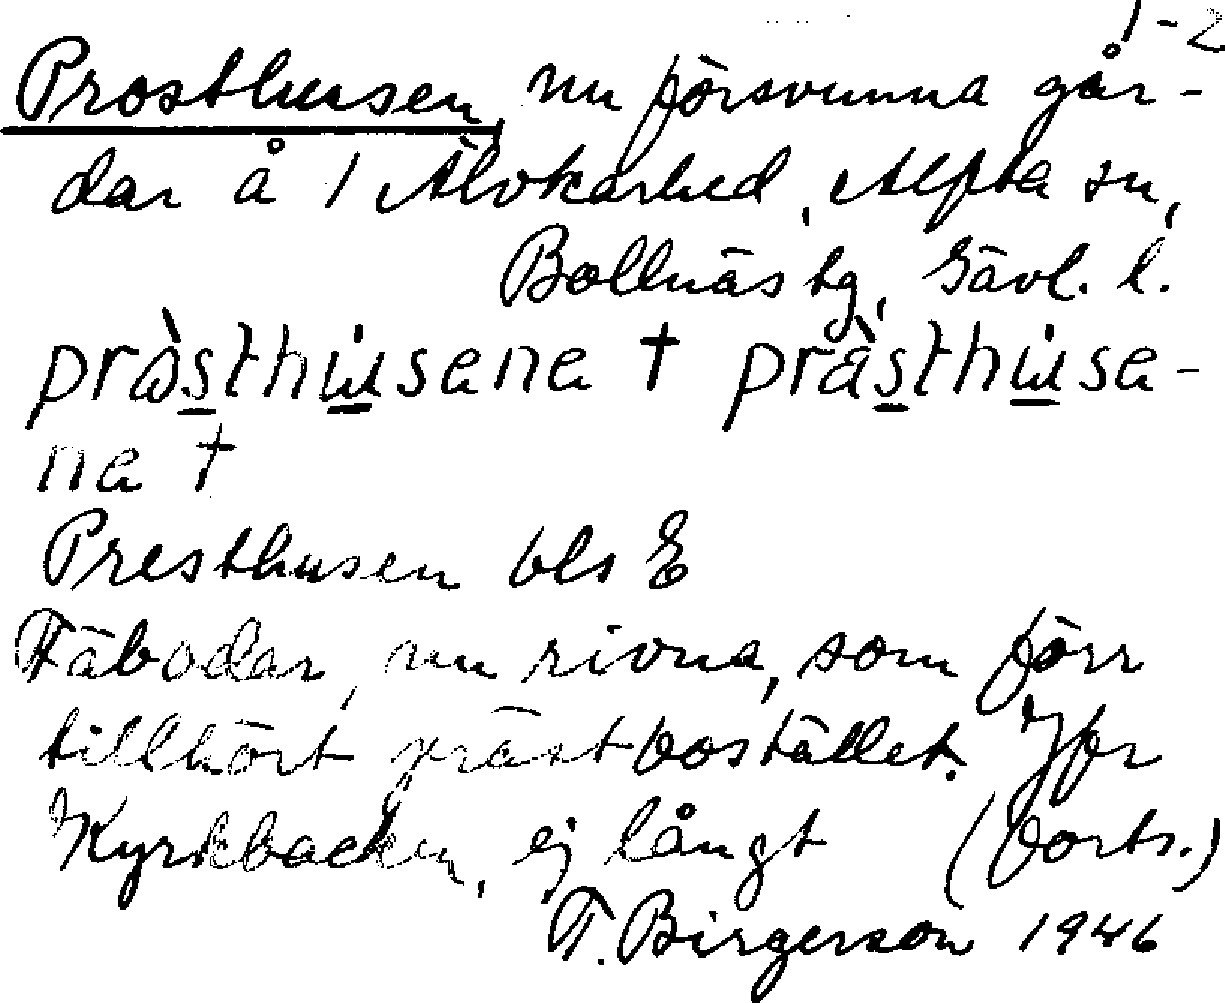 1-2
Prosthusen, nu försvunna går-
dar å 1 Älvkarhed, Alfta sn,
Bollnäs tg, Gävl. l.
pràsthusena † pràsthuse-
na †
Presthusen bls E
Fäbodar, nu rivna, som förr
tillhört prästbostället. Jfr
Kyrkbacken, ej långt (Forts.)
T. Birgerson 1946